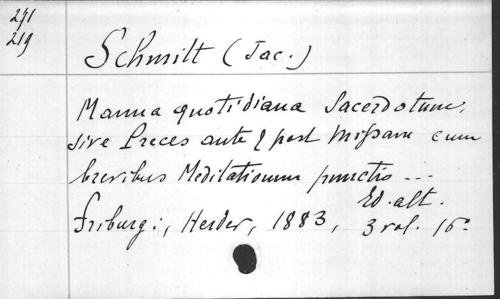 271
219
Schmitt (Jac.)
Manna quotidiana Sacerdotum,
sive Preces ante & post Missam cum
brevibus Meditationum punctis ...
Ed. alt.
Friburg:, Herder, 1883, 3 vol. 16º